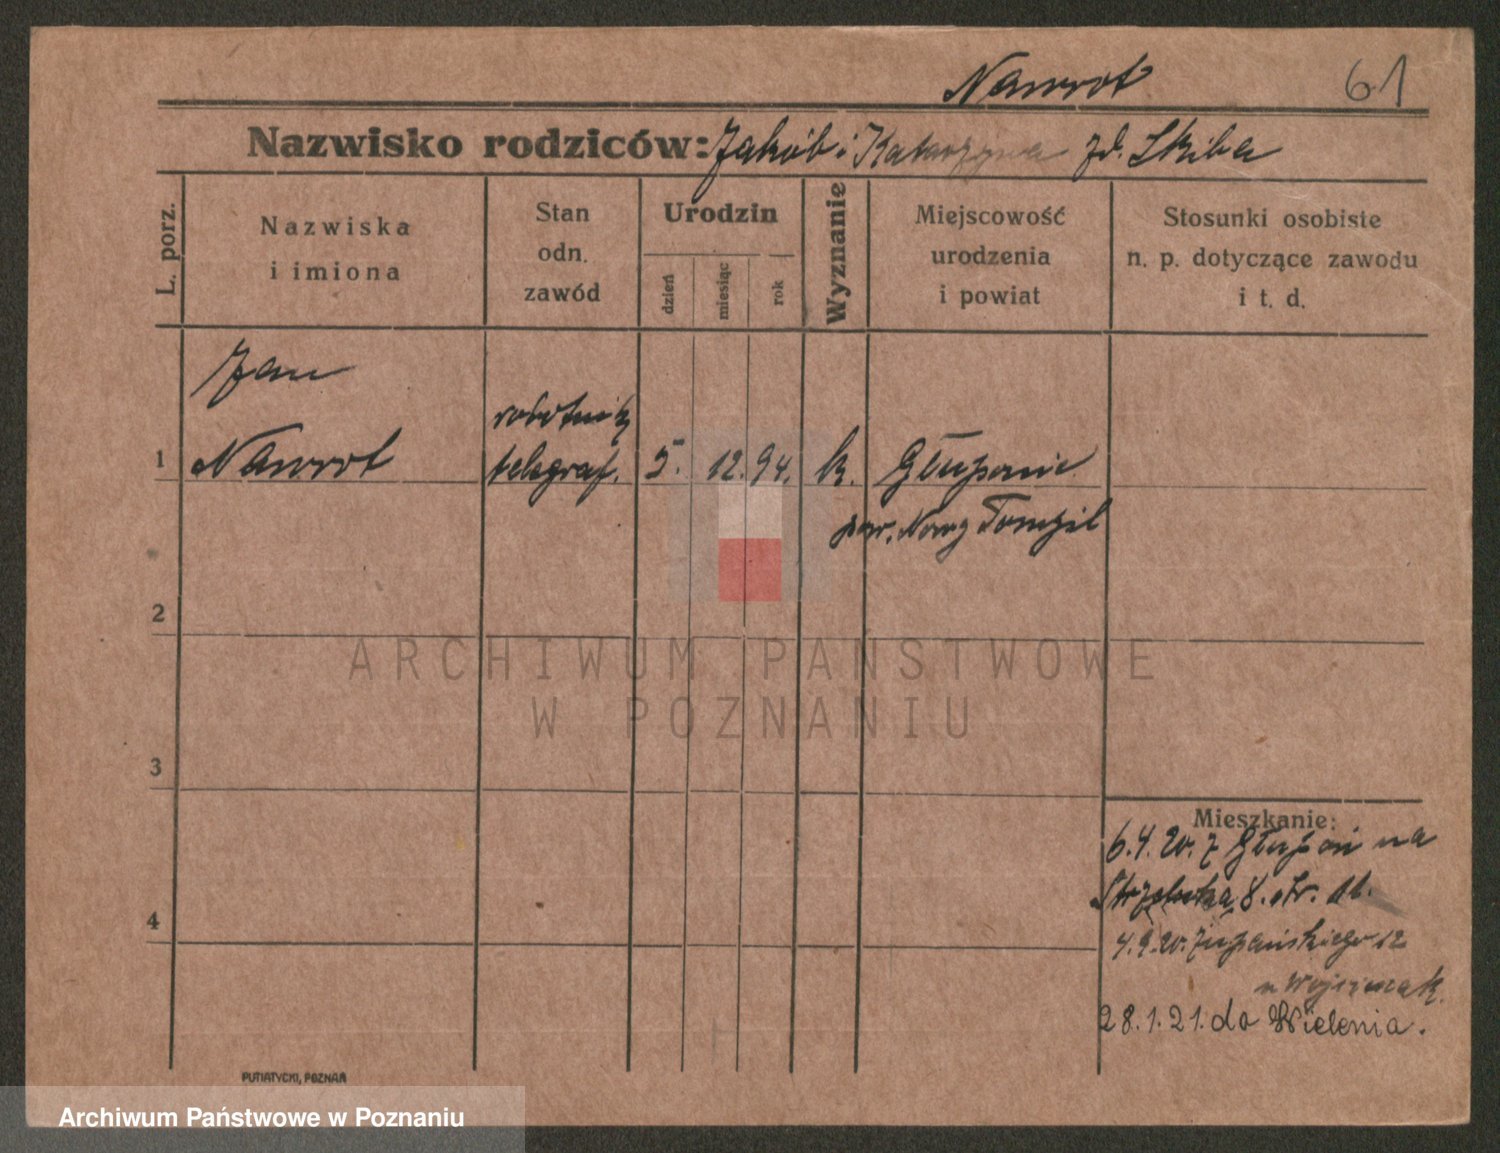 Nawrot 61
Nazwisko rodziców: Jakób i Katarzyna zd. Skiba
L. porz.
Nazwiska
i imiona
Stan
odn.
zawód
Urodzin
dzień
miesiąc
rok
Wyznanie
Miejscowość
urodzenia
i powiat
Stosunki osobiste
n. p. dotyczące zawodu
i t. d.
Jan
robotnik
1 Nawrot telegraf. 5. 12. 94. k. Głuponie
pow. Nowy Tomyśl
2
ARCHIWUM PAŃSTWOWE
W POZNANIU
3
Mieszkanie:
6.4.20. z Głupoń na
8.
4
4.9.20. Żupańskiego 12
u Wojciechak.
28.1.21. do Wielenia.
PUTIATYCKI, POZNAŃ
Archiwum Państwowe w Poznaniu